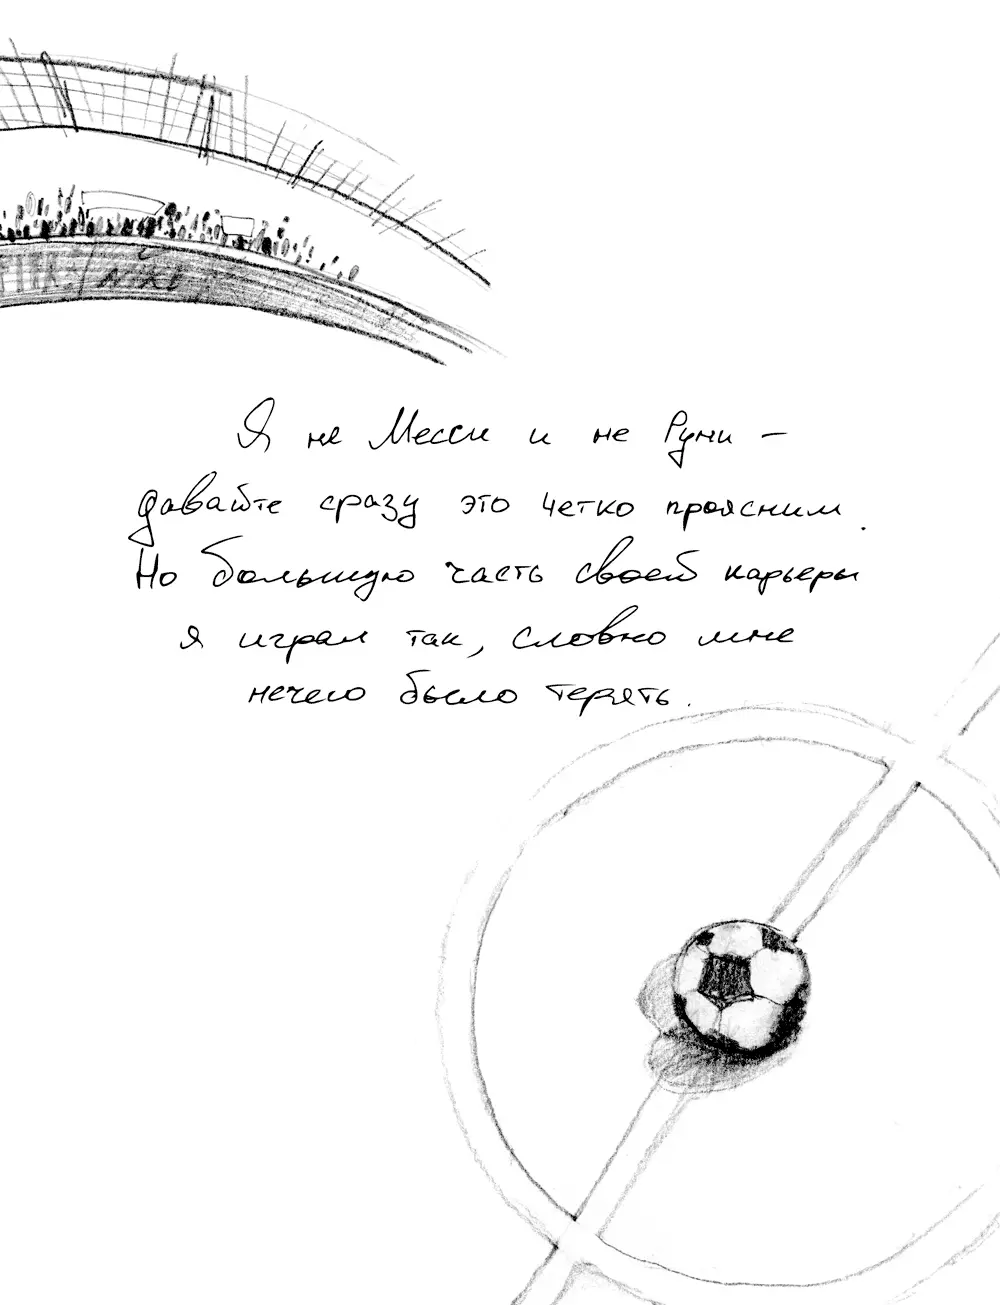 Я не Месси и не Руни –
давайте сразу это четко проясним.
Но большую часть своей карьеры
я играл так, словно мне
нечего было терять.